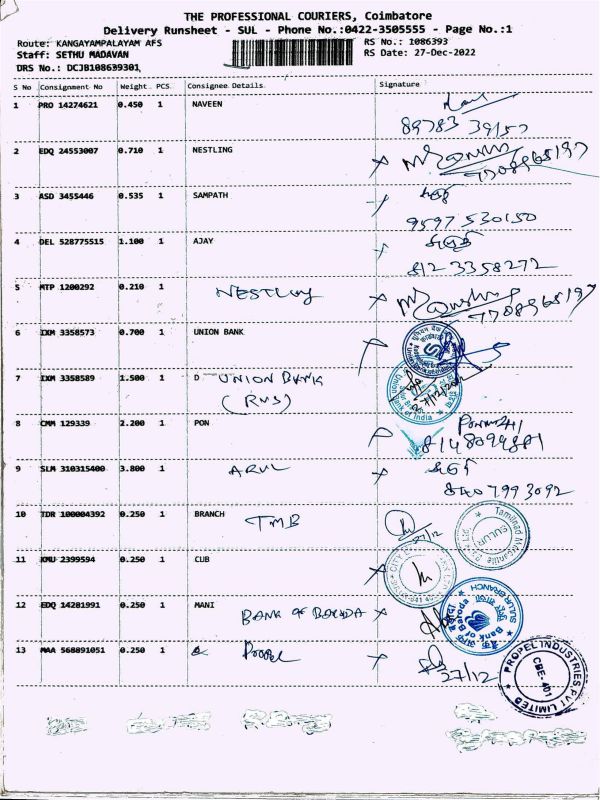 THE PROFESSIONAL COURIERS, Coimbatore
Delivery Runsheet - SUL - Phone No.:0422-3505555 - Page No.:1
Route: KANGAYAMPALAYAM AFS RS No.: 1086393
Staff: SETHU MADAVAN RS Date: 27-Dec-2022
DRS No.: DCJB108639301
S No Consignment No Weight PCS Consignee Details Signature
1 PRO 14274621 0.450 1 NAVEEN
89783 39157
2 EDQ 24553007 0.710 1 NESTLING
9708965197
3 ASD 3455446 0.535 1 SAMPATH
9597 530150
4 DEL 528775515 1.100 1 AJAY
812 3358272
5 MTP 1200292 0.210 1 NESTLING
9708965197
6 IXM 3358573 0.700 1 UNION BANK
7 IXM 3358589 1.500 1 D UNION BANK
(RUS) 27/12/2022
Union Bank of India
8 CMM 129339 2.200 1 PON
8148094881
9 SLM 310315400 3.800 1 ARUL
7993092
10 TDR 100004392 0.250 1 BRANCH TMB 27/12
Tamilnad Mercantile SULUR
11 KMU 2399594 0.250 1 CUB
CITY
12 EDQ 14281991 0.250 1 MANI BANK OF BARODA
Bank of Baroda SULUR BRANCH
13 MAA 568891051 0.250 1 Propel 27/12
PROPEL INDUSTRIES PVT LIMITED
CBE-401